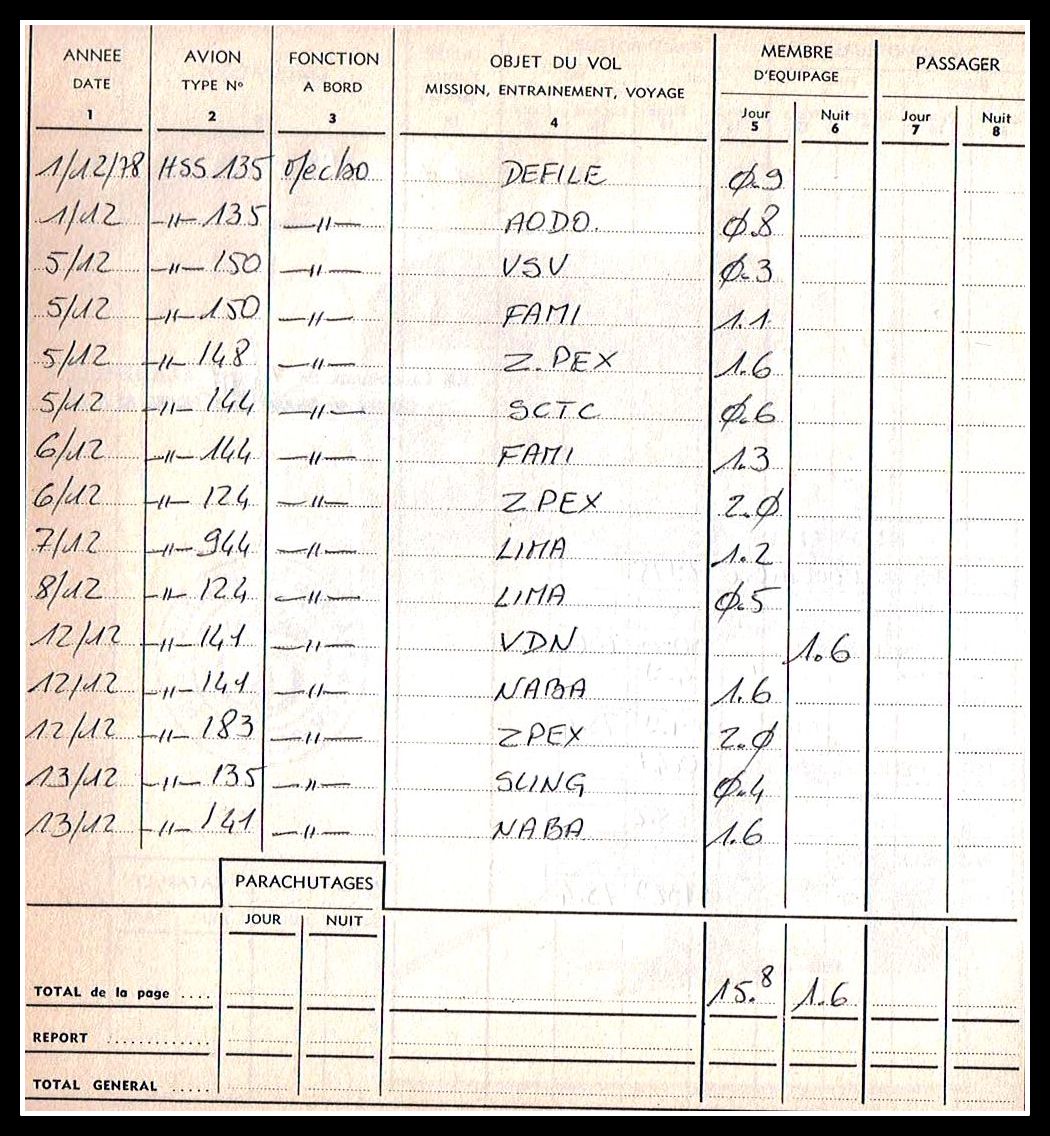 ANNEE AVION FONCTION OBJET DU VOL MEMBRE PASSAGER
DATE TYPE Nº A BORD MISSION, ENTRAINEMENT, VOYAGE D'EQUIPAGE
Jour Nuit Jour Nuit
1 2 3 4 5 6 7 8
1/12/78 HSS 135 DEFILE Ø.9
1/12 —〃— 135 —〃— AODO. Ø.8
5/12 —〃— 150 —〃— VSV Ø.3
5/12 —〃— 150 —〃— FAMI 1.1
5/12 —〃— 148 —〃— Z.PEX 1.6
5/12 —〃— 144 —〃— SCTC Ø.6
6/12 —〃— 144 —〃— FAMI 1.3
6/12 —〃— 124 —〃— Z PEX 2.Ø
7/12 —〃— 944 —〃— LIMA 1.2
8/12 —〃— 124 —〃— LIMA Ø.5
12/12 —〃— 141 —〃— VDN 1.6
12/12 —〃— 141 —〃— NABA 1.6
12/12 —〃— 183 —〃— ZPEX 2.Ø
13/12 —〃— 135 —〃— SLING Ø.4
13/12 —〃— 141 —〃— NABA 1.6
PARACHUTAGES
JOUR NUIT
TOTAL de la page .... 15.8 1.6
REPORT .............
TOTAL GENERAL .....